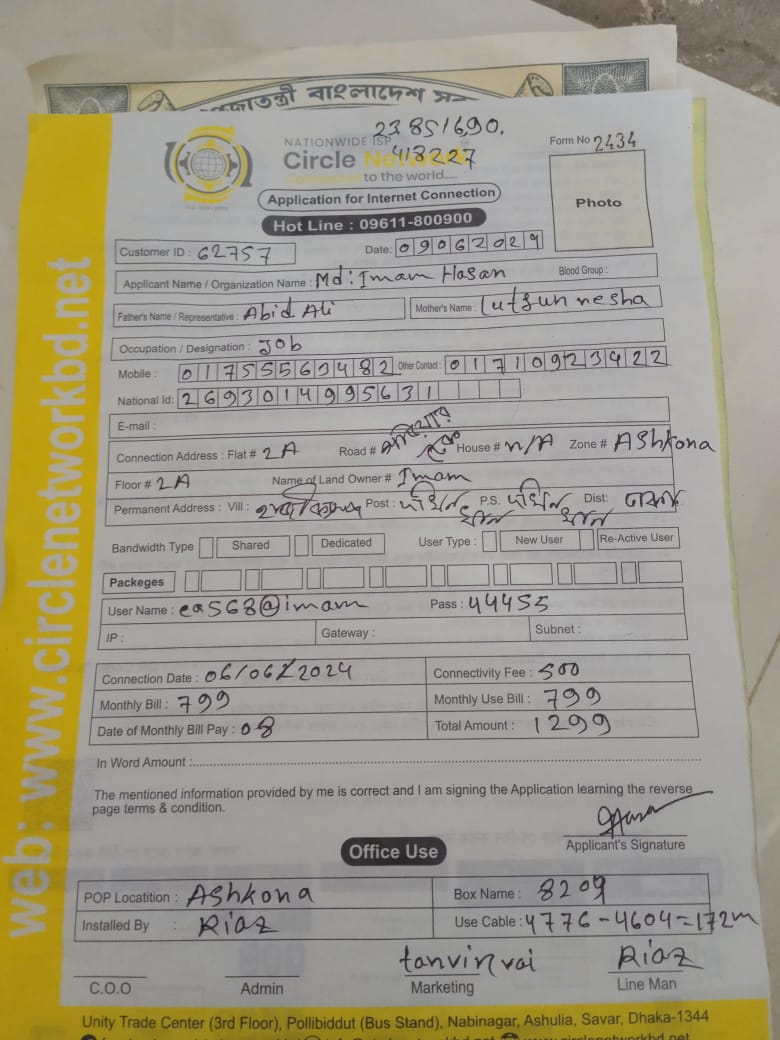 গণপ্রজাতন্ত্রী বাংলাদেশ
23851690.
NATIONWIDE ISP
418227
Form No 2434
Circle Network
to the world.....
Photo
Application for Internet Connection
Hot Line : 09611-800900
Customer ID : 62757 Date: 09062024
Applicant Name / Organization Name : Md: Imam Hasan Blood Group :
Father's Name / Representative : Abid Ali Mother's Name : Lutfun nesha
Occupation / Designation : Job
Mobile : 01755569482 Other Contact : 01710923422
National Id: 2693014995631
E-mail :
Connection Address : Flat # 2A Road # House # N/A Zone # Ashkona
Floor # 2A Name of Land Owner # Imam
Permanent Address : Vill : Post : P.S. Dist: ঢাকা
Bandwidth Type Shared Dedicated User Type : New User Re-Active User
Packeges
User Name : ea568@imam Pass : 44455
IP : Gateway : Subnet :
Connection Date : 06/06/2024 Connectivity Fee : 500
Monthly Bill : 799 Monthly Use Bill : 799
Date of Monthly Bill Pay : 08 Total Amount : 1299
In Word Amount :
The mentioned information provided by me is correct and I am signing the Application learning the reverse
page terms & condition.
Applicant's Signature
Office Use
POP Locatition : Ashkona Box Name : 8209
Installed By : Riaz Use Cable : 4776-4604=172m
tanvir vai Riaz
C.O.O Admin Marketing Line Man
Unity Trade Center (3rd Floor), Pollibiddut (Bus Stand), Nabinagar, Ashulia, Savar, Dhaka-1344
web: www.circlenetworkbd.net